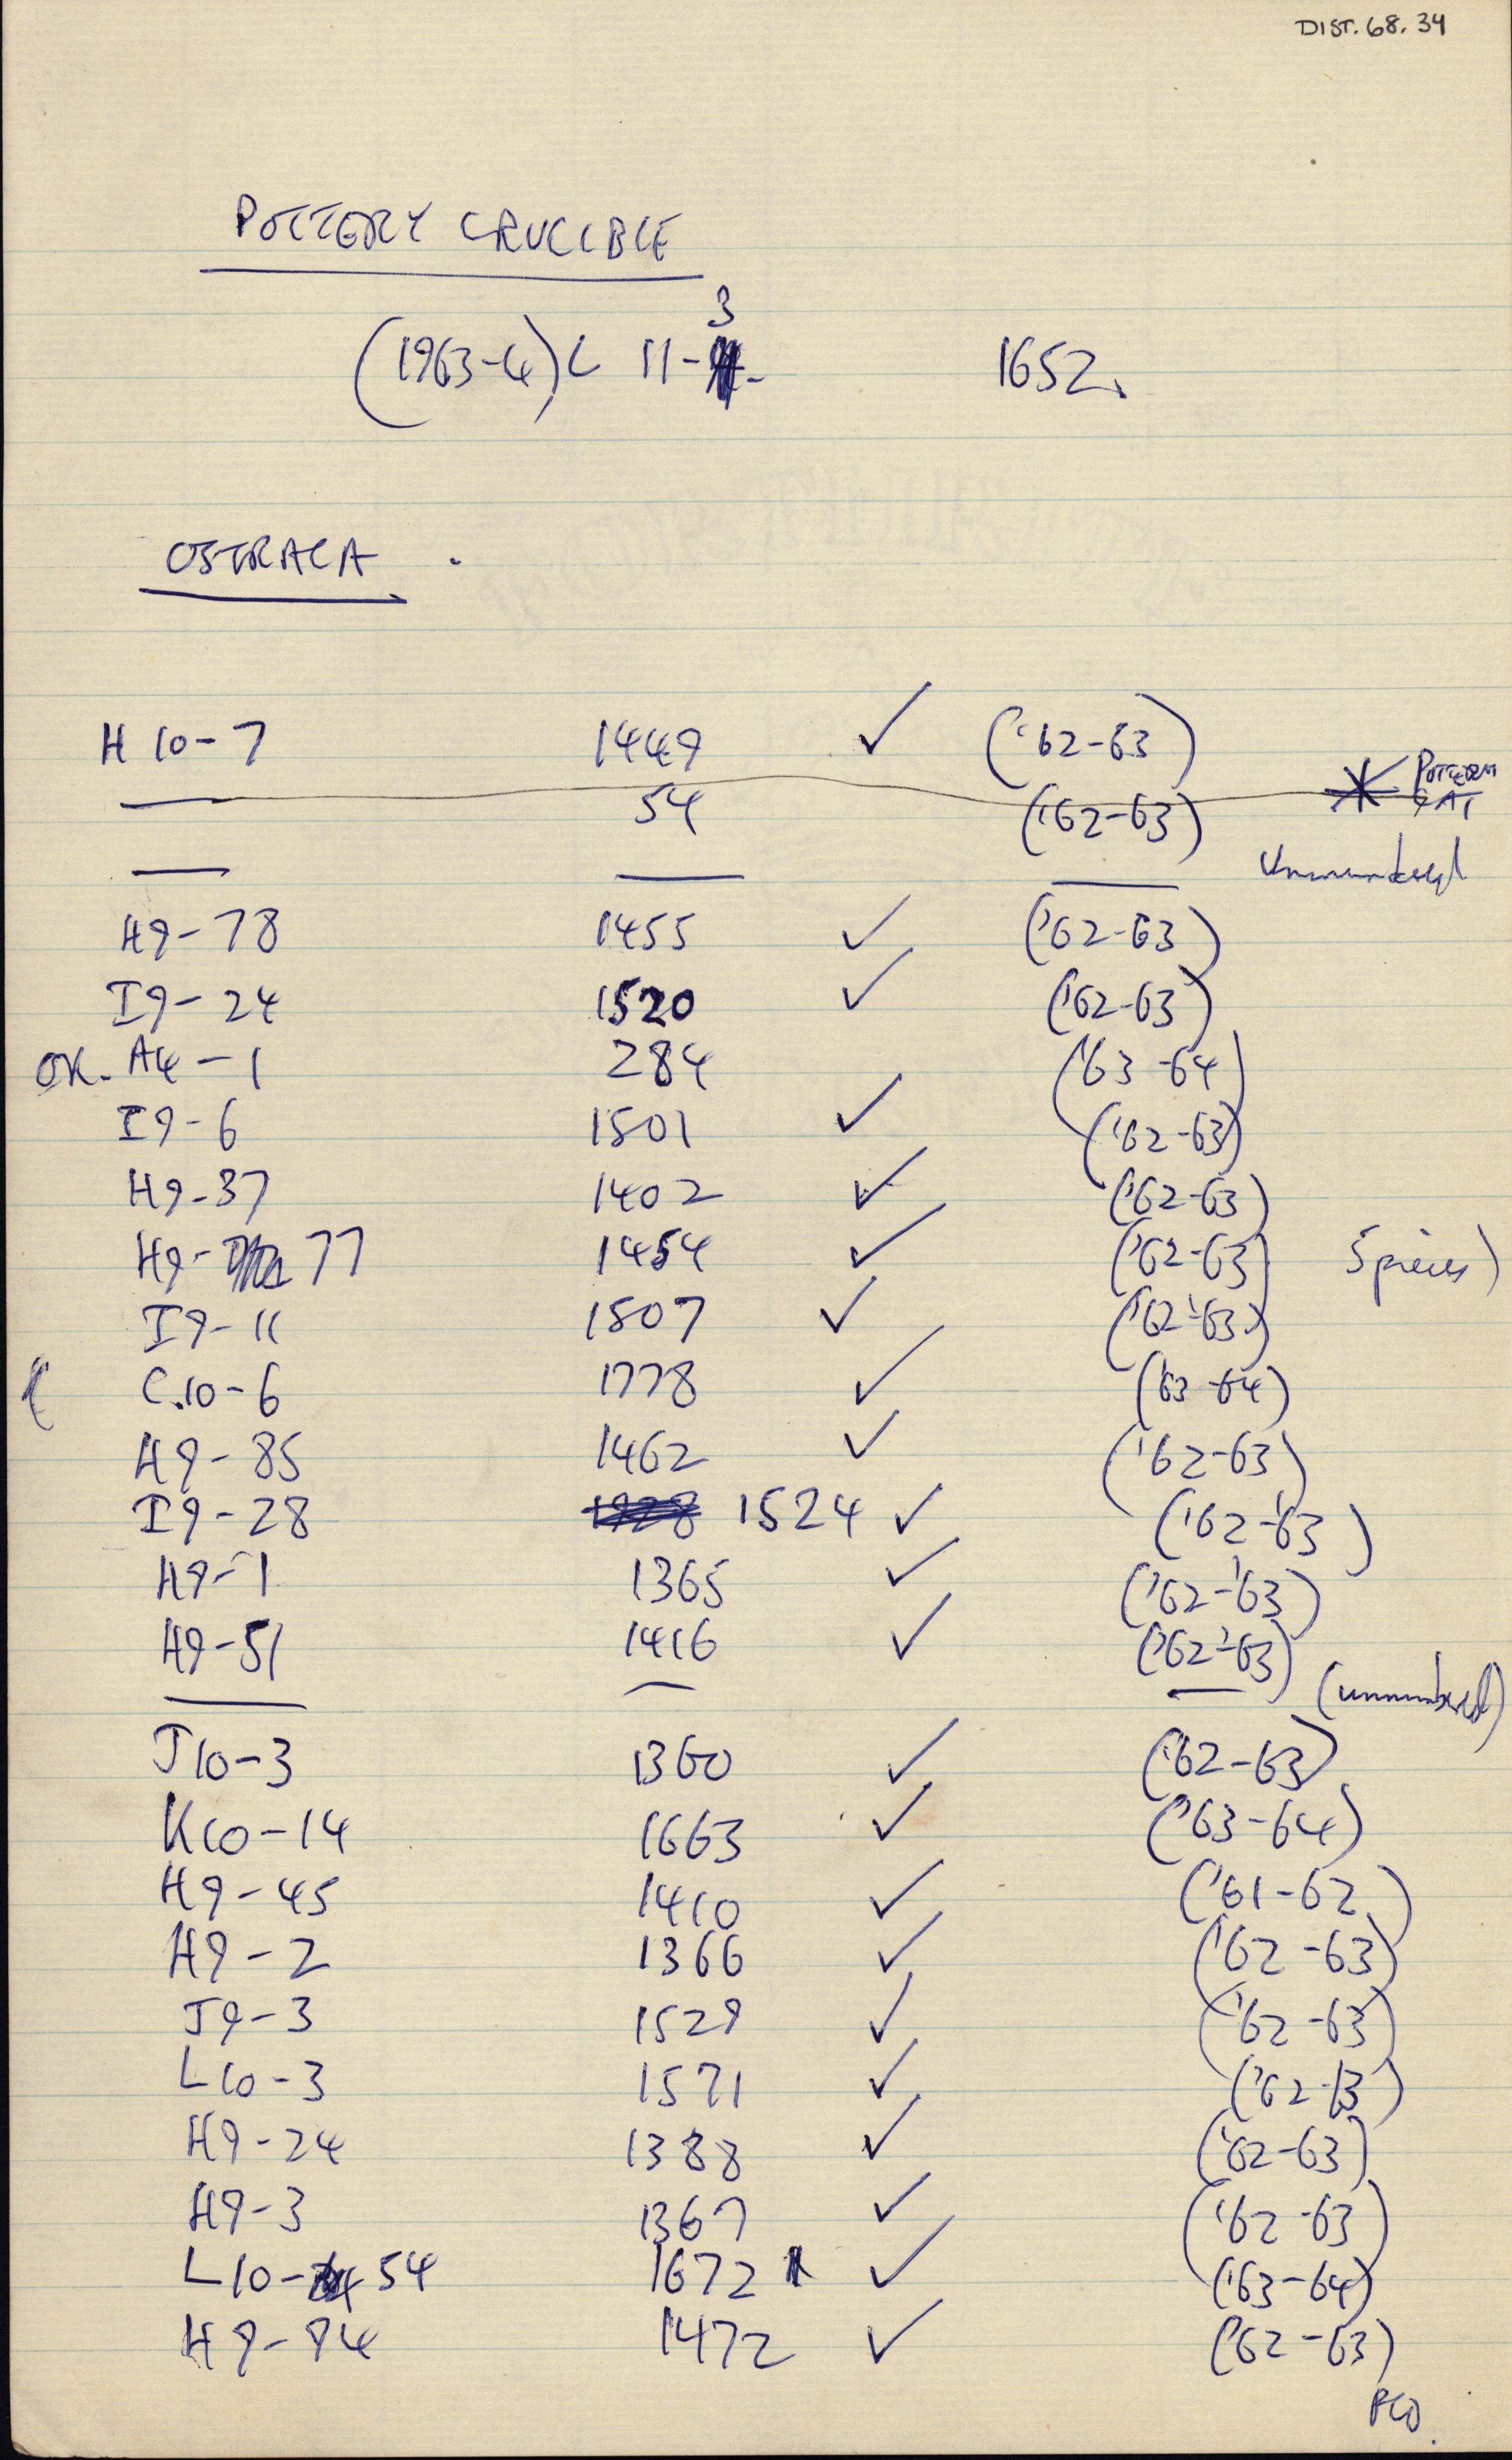 DIST. 68. 34
POTTERY CRUCIBLE
3
(1963-4) L 11- 1652.
OSTRACA .
H 10-7 1449 ✓ ('62-63)
— 54 ('62-63) * POTTERY CAT
— — — Unnumbered
H9-78 1455 ✓ ('62-63)
I9-24 1520 ✓ ('62-63)
OK. A4-1 284 ('63-64)
I9-6 1501 ✓ ('62-63)
H9-37 1402 ✓ ('62-63)
H9- 77 1454 ✓ ('62-63) 5 pieces)
I9-11 1507 ✓ ('62-'63)
C.10-6 1778 ✓ ('63-64)
H9-85 1462 ✓ ('62-63)
I9-28 1528 1524 ✓ ('62-'63)
H9-1 1365 ✓ ('62-'63)
H9-51 1416 ✓ ('62-'63)
— — — (unnumbered)
J10-3 1360 ✓ ('62-63)
K10-14 1663 ✓ ('63-64)
H9-45 1410 ✓ ('61-62)
H9-2 1366 ✓ ('62-63)
J9-3 1529 ✓ ('62-63)
L10-3 1571 ✓ ('62-63)
H9-24 1388 ✓ ('62-63)
H9-3 1367 ✓ ('62-63)
L10- 54 1672 ✓ ('63-64)
H9-94 1472 ✓ ('62-63)